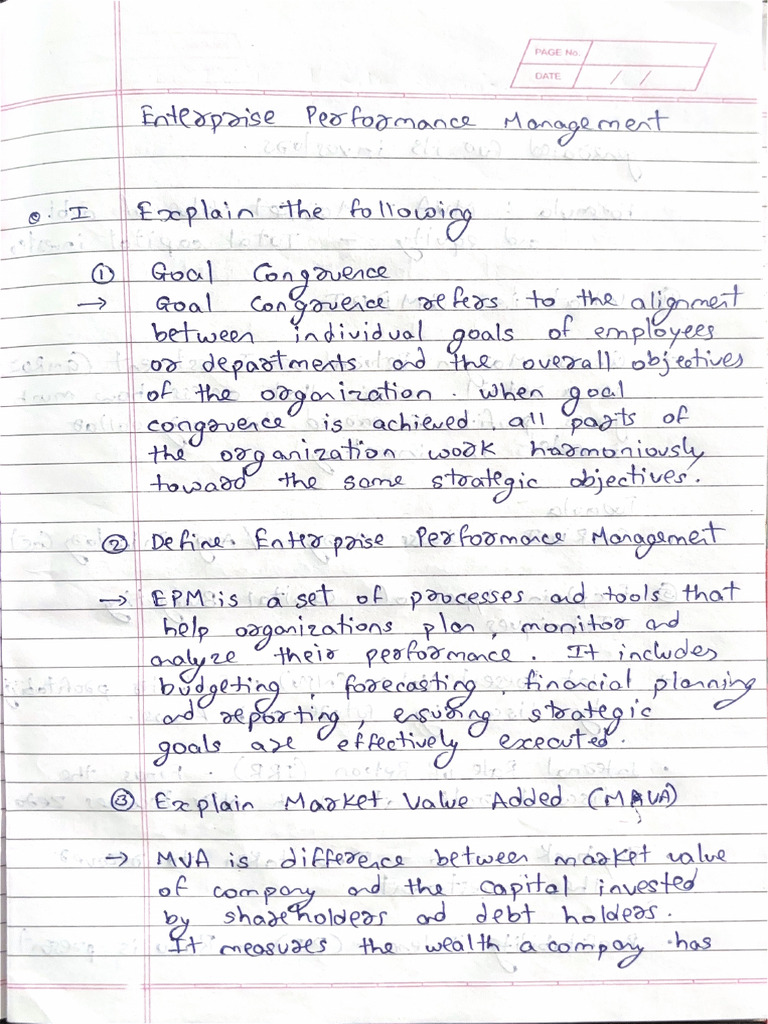 PAGE No.
DATE / /
Enterprise Performance Management
Q. I Explain the following
① Goal Congruence
→ Goal congruence refers to the alignment
between individual goals of employees
or departments and the overall objectives
of the organization. When goal
congruence is achieved all parts of
the organization work harmoniously
toward the same strategic objectives.
② Define Enterprise Performance Management
→ EPM is a set of processes and tools that
help organizations plan, monitor and
analyze their performance. It includes
budgeting, forecasting, financial planning
and reporting, ensuring strategic
goals are effectively executed.
③ Explain Market Value Added (MVA)
→ MVA is difference between market value
of company and the capital invested
by shareholders and debt holders.
It measures the wealth a company has